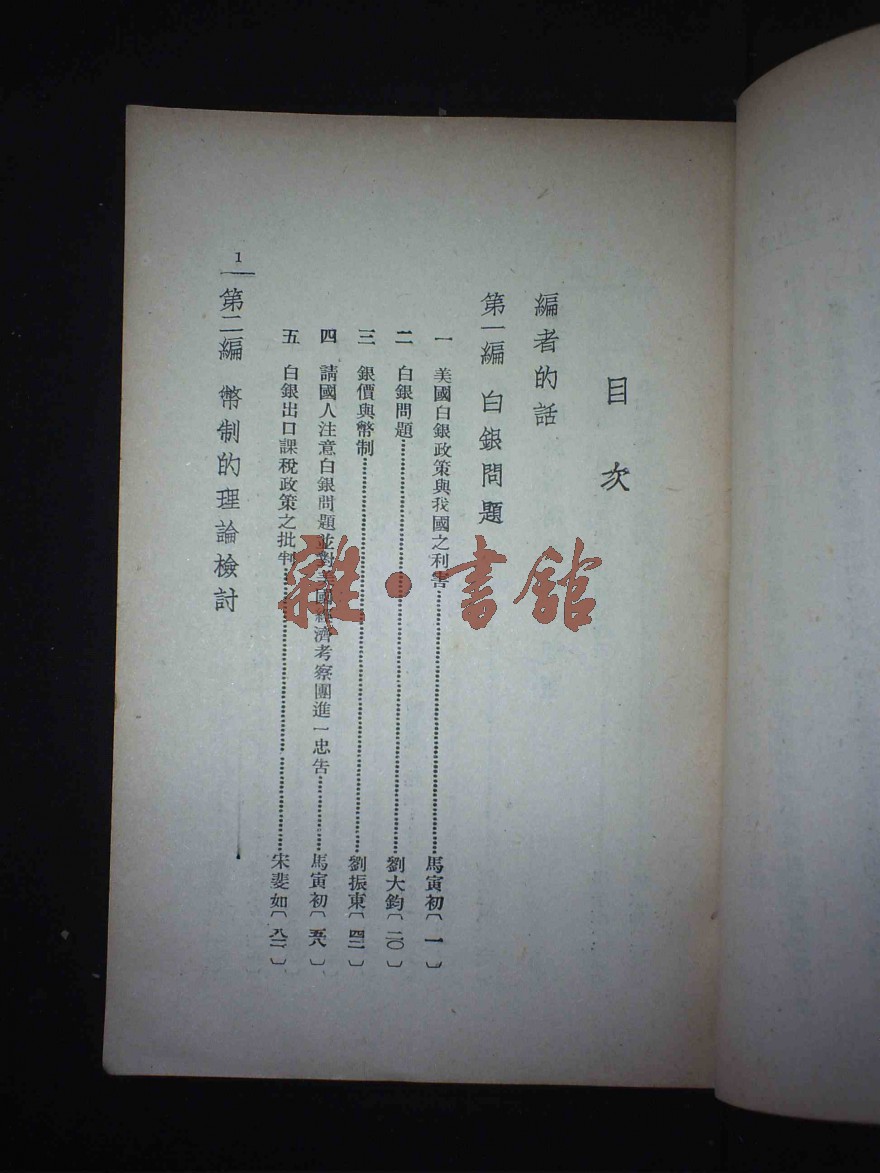 目次
編者的話
第一編 白銀問題
一 美國白銀政策與我國之利害……馬寅初〔一〕
二 白銀問題……劉大鈞〔二〇〕
三 銀價與幣制……劉振東〔四二〕
四 請國人注意白銀問題並對美國經濟考察團進一忠告……馬寅初〔五八〕
五 白銀出口課稅政策之批判……宋斐如〔八二〕
第二編 幣制的理論檢討
1
雜·書館